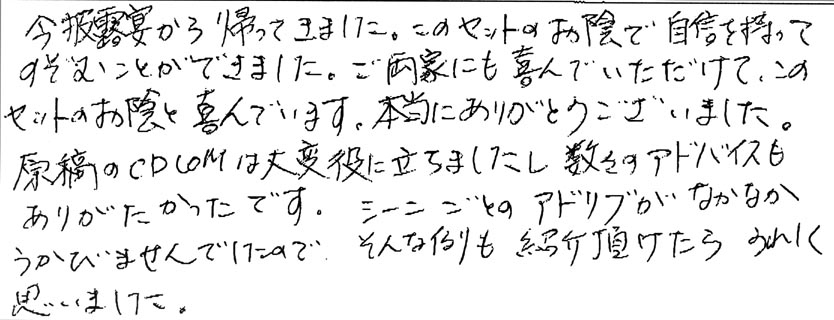 今披露宴から帰ってきました。このセットのお陰で自信を持って
のぞむことができました。ご両家にも喜んでいただけて、この
セットのお陰と喜んでいます。本当にありがとうございました。
原稿のCDROMは大変役に立ちましたし数々のアドバイスも
ありがたかったです。シーンごとのアドリブがなかなか
うかびませんでしたので、そんな例も紹介頂けたらうれしく
思いました。